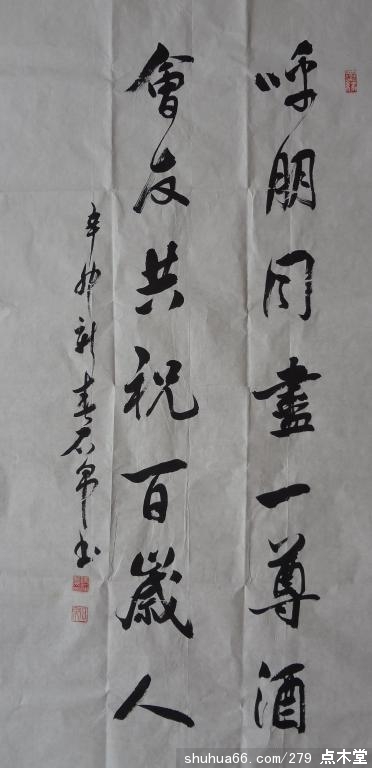 呼朋同盡一尊酒
會友共祝百歲人
辛卯新春石帛书
shuhua66.com/279 点木堂